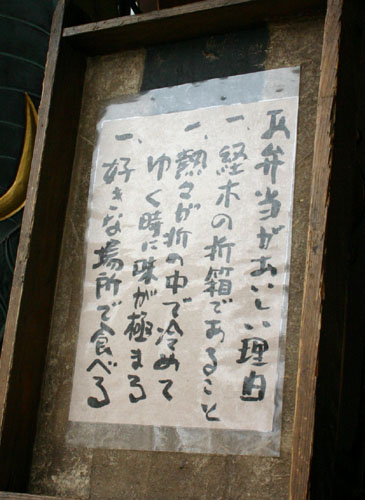 瓜弁当がおいしい理由
一、経木の折箱であること
一、熱々が折の中で冷めて
ゆく時に味が極まる
一、好きな場所で食べる